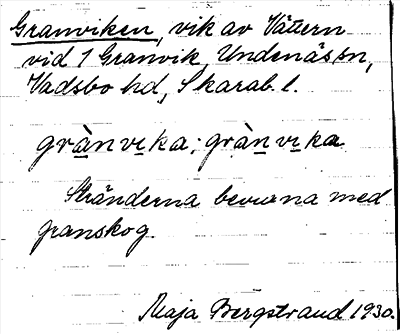 Granviken, vik av Vättern
vid 1 Granvik, Undenäs sn,
Vadsbo hd, Skarab. l.
grànvika; grànvika
Stränderna bevuxna med
granskog.
Maja Bergstrand 1930.